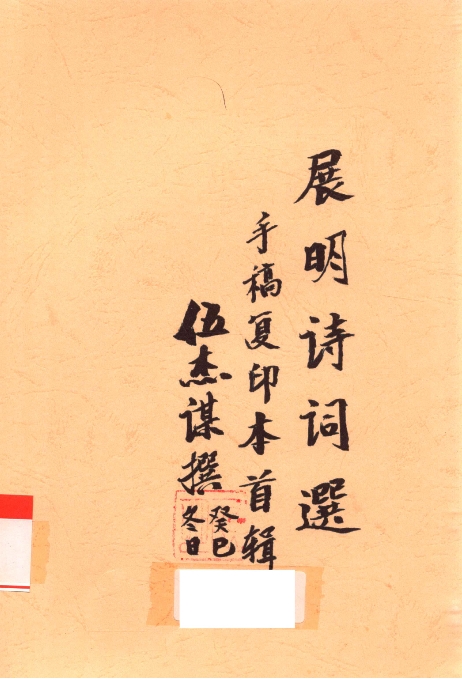 展明诗词選
手稿复印本首辑
伍杰谋撰
癸巳
冬日